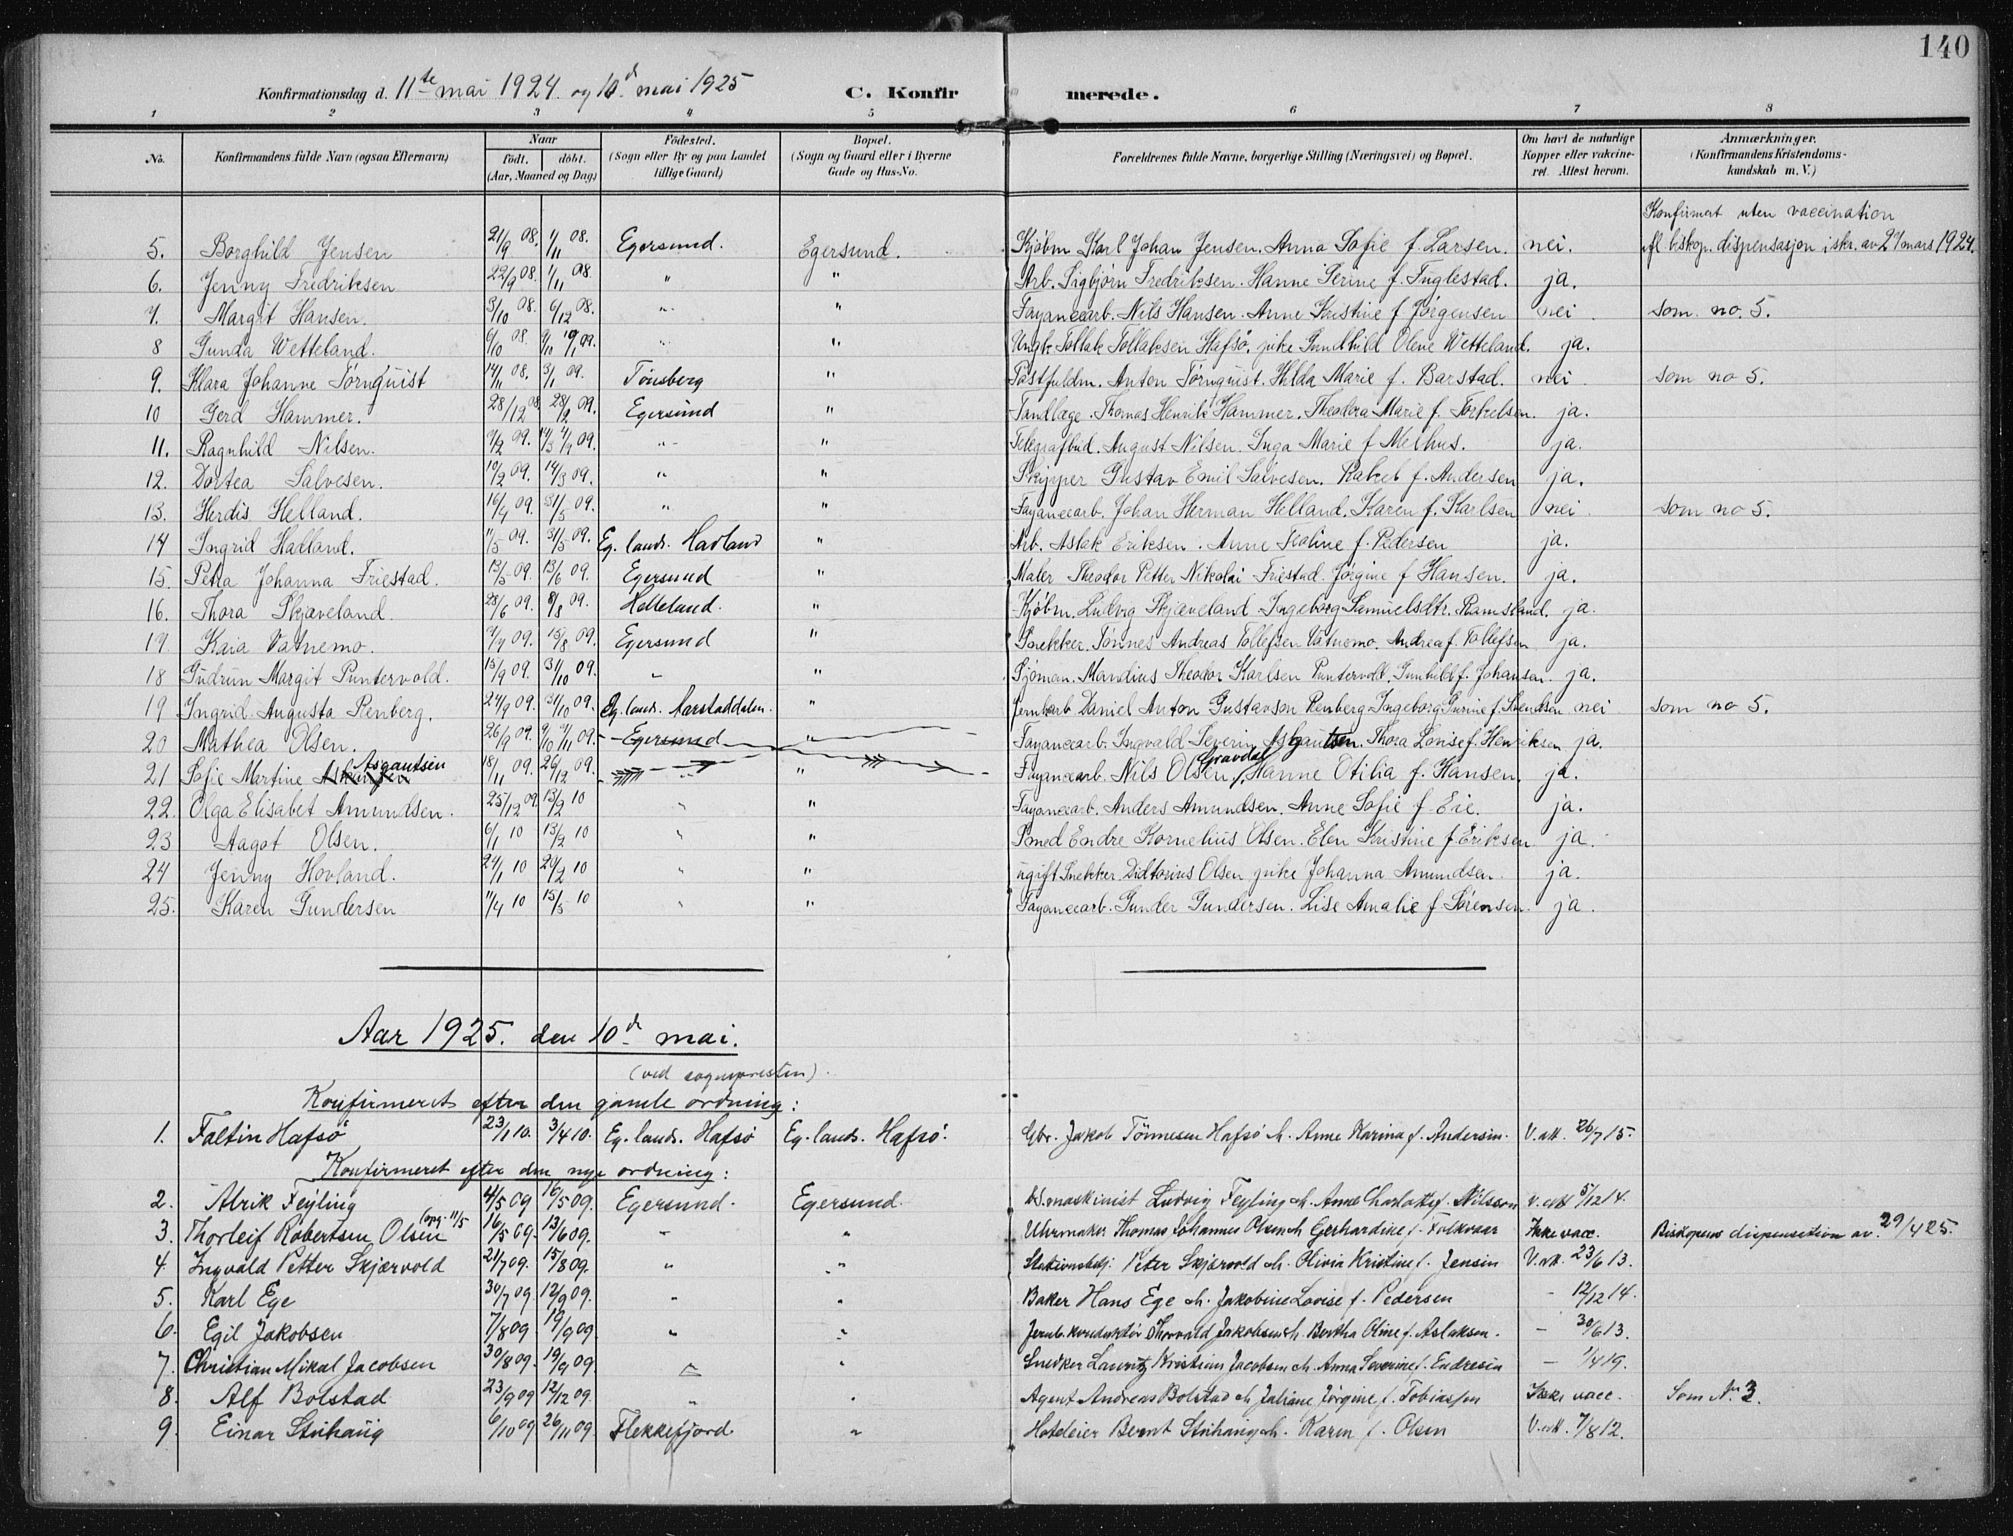 140
Konfirmationsdag d. 11te mai 1924 og 10d mai 1925 C. Konfirmerede.
1 2 3 4 5 6 7 8
No. Konfirmandens fulde Navn (ogsaa Efternavn) Naar født. døbt. (Aar, Maaned og Dag) Fødested. (Sogn eller By og paa Landet tillige Gaard) Bopæl. (Sogn og Gaard eller i Byerne Gade og Hus-No. Forældrenes fulde Navne, borgerlige Stilling (Næringsvei) og Bopæl. Om havt de naturlige Kopper eller vakcineret. Attest herom. Anmærkninger. (Konfirmandens Kristendomskundskab m. V.)
Konfirmert uten vaccination
5. Borghild Jensen 21/9 08. 1/11 08. Egersund. Egersund. Kjøbm. Karl Johan Jensen. Anna Sofie f. Larsen. nei. efl. biskop. dispensasjon i skr. av 27 mars 1924.
6. Jenny Fredriksen 22/9 08. 1/11 08. " " Arb. Sigbjørn Fredriksen. Hanne Serine f. Fuglestad. ja.
7. Margit Hansen. 3/10 08. 6/12 08. " " Fayancearb. Nils Hansen. Anne Kristine f. Jørgensen nei. som no. 5.
8 Gunda Wetteland. 6/10 08. 10/1 09. " " Ungk. Tollak Tollaksen Hafsø, pike Gundhild Olene Wetteland. ja.
9. Klara Johanne Tørnquist 14/11 08. 3/1 09. Tønsberg " Postfuldm. Anton Tørnquist. Hilda Marie f. Barstad. nei som no 5.
10 Gerd Hammer. 28/12 08. 28/2 09. Egersund " Tandlæge. Thomas Henrik Hammer. Theodora Marie f. Torkelsen. ja.
11. Ragnhild Nilsen. 7/2 09. " " Telegrafbud. August Nilsen. Inga Marie f. Melhus. ja.
12. Dortea Salvesen. 10/2 09. 14/3 09. " " Skipper Gustav Emil Salvesen. Rakel f. Andersen ja.
13. Herdis Helland. 16/4 09. 31/5 09. " " Fayancearb. Johan Herman Helland. Karen f. Karlsen nei som no 5.
14 Ingrid Hadland. 1/5 09. 31/5 09. Eg. lands. Hadland " Arb. Aslak Eriksen. Anne Tealine f. Pedersen ja.
15. Petra Johanna Friestad. 13/5 09. 13/6 09. Egersund " Maler Theodor Petter Nikolai Friestad. Jørgine f. Hansen. ja.
16. Thora Skjæveland. 28/6 09. 8/8 09. Helleland. " Kjøbm. Ludvig Skjæveland Ingeborg Samuelsdtr. Ramsland. ja.
17. Kaia Vatnemo. 7/7 09. 15/8 09. Egersund " Snekker. Tønnes Andreas Tollefsen Vatnemo. Andrea f. Tollefsen ja.
18 Gudrun Margit Puntervold. 15/9 09. 31/10 09. " " Sjøman. Mandius Theodor Karlsen Puntervold. Gunhild f. Johansen. ja.
19 Ingrid Augusta Renberg. 24/9 09. 31/10 09. Eg. lands. Aarstaddalen. " Jernbarb. Daniel Anton Gustavson Renberg Ingeborg Gurine f. Svendsen nei som no 5.
20 Mathea Olsen. 26/9 09. Egersund " Fayancearb. Ingvald Severin Asgautsen. Thora Lovise f. Henriksen ja.
21 Sofie Martine Asgautsen 18/11 09. 26/12 09. " " Fayancearb. Nils Olsen Gravdal, Hanne Otilia f. Hansen. ja.
22. Olga Elisabet Amundsen. 25/12 09. 13/2 10 " " Fayancearb. Anders Amundsen. Anne Sofie f. Eie. ja.
23 Aagot Olsen. 6/1 10 13/2 10 " " Smed Endre Kornelius Olsen. Elen Kristine f. Eriksen ja.
24 Jenny Hovland. 24/1 10 20/2 10 " " ugift Snekker Didtorius Olsen pike Johanna Amundsen. ja.
25. Karen Gundersen 11/4 10 15/5 10 " " Fayancearb. Gunder Gundersen. Lise Amalie f. Sørensen. ja.
Aar 1925. den 10d mai.
(ved sognepresten).
Konfirmeret efter den gamle ordning:
1. Faltin Hafsø 23/1 10. 3/4 10. Eg. lands. Hafsø Eg. lands. Hafsø. Gbr. Jakob Tønnesen Hafsø h. Anne Karina f. Andersen. V. att. 26/7 15.
Konfirmeret efter den nye ordning:
2. Alrik Feyling 4/5 09 16/5 09. Egersund. Egersund. maskinist Ludvig Feyling h. Anne Charlotte f. Nilsson V. att 5/12 14.
3. Thorleif Robertsen Olsen 16/5 09. 13/6 09. " " Uhrmaker Thomas Johannes Olsen h Gerhardine f. Folkvaar Ikke vacc. Biskopens dispensation av 29/4 25.
4. Ingvald Petter Skjærvold 21/7 09. 15/8 09. " " Stationsbetj. Peter Skjærvold h. Olivia Kristine f. Jensen V. att. 23/6 13.
5. Karl Ege 30/7 09. 12/9 09. " " Baker Hans Ege h. Jakobine Lovise f. Pedersen - 12/12 14.
6. Egil Jakobsen 7/8 09. 19/9 09. " " Jernb. konduktør Thorvald Jakobsen h. Bertha Oline f. Aslaksen. - 30/6 13.
7. Christian Mikal Jacobsen 30/8 09. 19/9 09. " " Snedker Lauritz Kristian Jacobsen h. Anna Severine f. Endresen - 1/4 19.
8. Alf Bolstad 23/9 09 12/12 09. " " Agent Andreas Bolstad h Juliane Jørgine f. Tobiassen Ikke vacc. Som Nr. 3.
9. Einar Stuhaug 6/10 09 26/11 09. Flekkefjord " Hoteleier Bernt Stuhaug h. Karen f. Olsen V. att. 7/8 12.